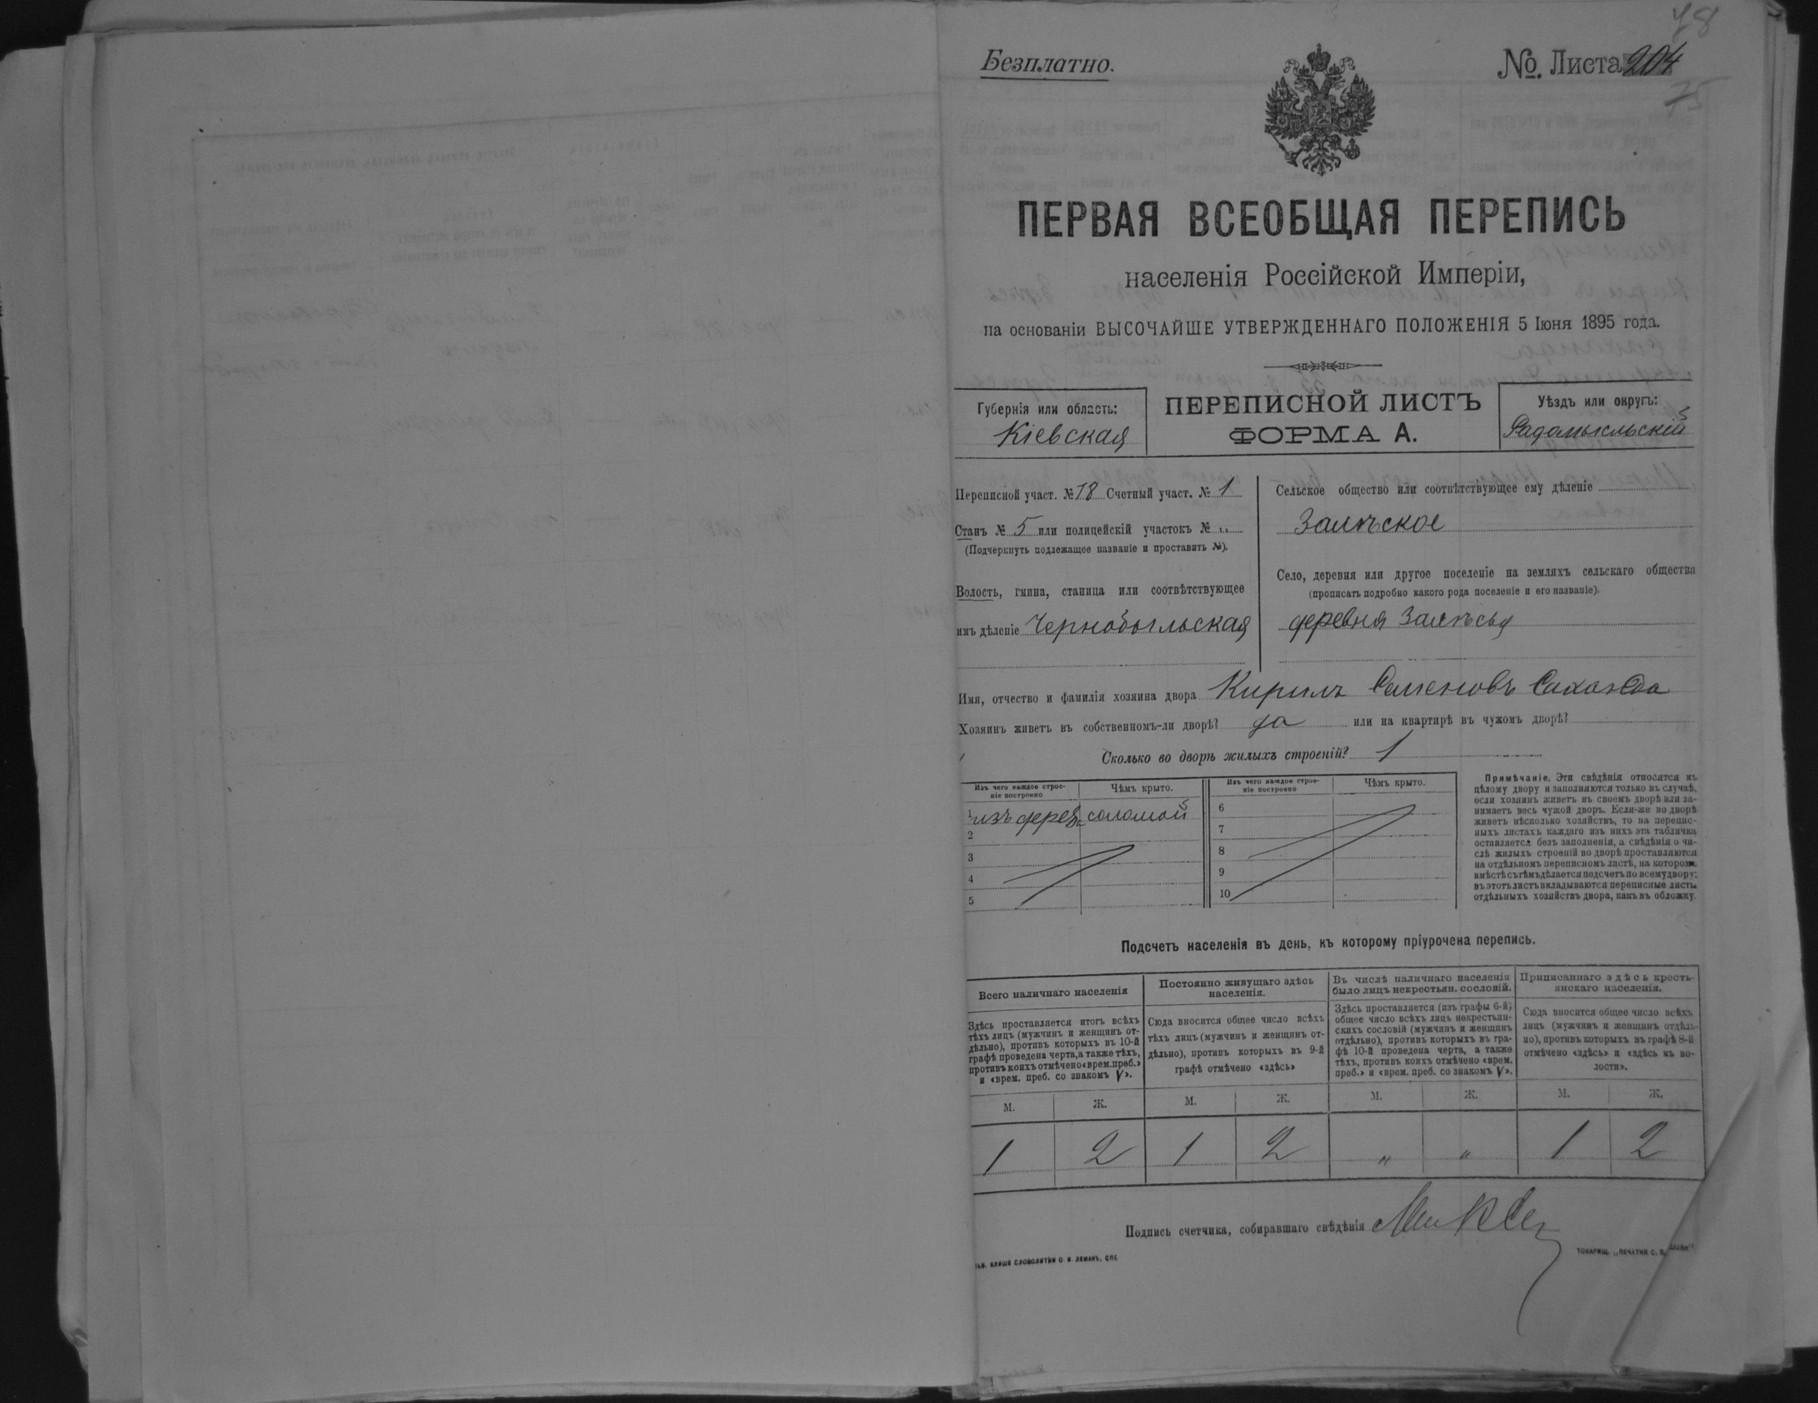 78
Безплатно.
№. Листа 204
75
ПЕРВАЯ ВСЕОБЩАЯ ПЕРЕПИСЬ
населенія Россійской Имперіи,
на основаніи ВЫСОЧАЙШЕ УТВЕРЖДЕННАГО ПОЛОЖЕНІЯ 5 Іюня 1895 года.
Губернія или область:
Кіевская
ПЕРЕПИСНОЙ ЛИСТЪ
ФОРМА А.
Уѣздъ или округъ:
Радомысльскій
Переписной участ. № 18 Счетный участ. № 1
Станъ № 5 или полицейскій участокъ № „
(Подчеркнуть подлежащее названіе и проставить №).
Волость, гмина, станица или соотвѣтствующее
имъ дѣленіе Чернобыльская
Сельское общество или соотвѣтствующее ему дѣленіе
Залѣское
Село, деревня или другое поселеніе на земляхъ сельскаго общества
(прописать подробно какого рода поселеніе и его названіе).
деревня Залѣсье
Имя, отчество и фамилія хозяина двора Кирилъ Семеновъ
Хозяинъ живетъ въ собственномъ-ли дворѣ? да или на квартирѣ въ чужомъ дворѣ?
Сколько во дворѣ жилыхъ строеній? 1
Изъ чего каждое строе-
ніе построено
Чѣмъ крыто.
1 изъ дерева соломой
2
3
4
5
Изъ чего каждое строе-
ніе построено
Чѣмъ крыто.
6
7
8
9
10
Примѣчаніе. Эти свѣдѣнія относятся къ
цѣлому двору и заполняются только въ случаѣ,
если хозяинъ живетъ въ своемъ дворѣ или за-
нимаетъ весь чужой дворъ. Если-же во дворѣ
живетъ нѣсколько хозяйствъ, то на перепис-
ныхъ листахъ каждаго изъ нихъ эта табличка
оставляется безъ заполненія, а свѣдѣнія о чи-
слѣ жилыхъ строеній во дворѣ проставляются
на отдѣльномъ переписномъ листѣ, на которомъ
вмѣстѣ съ тѣмъ дѣлается подсчетъ по всему двору;
въ этотъ листъ вкладываются переписные листы
отдѣльныхъ хозяйствъ двора, какъ въ обложку.
Подсчетъ населенія въ день, къ которому пріурочена перепись.
Всего наличнаго населенія
Здѣсь проставляется итогъ всѣхъ
тѣхъ лицъ (мужчинъ и женщинъ от-
дѣльно), противъ которыхъ въ 10-й
графѣ проведена черта, а также тѣхъ,
противъ коихъ отмѣчено «врем. преб.»
и «врем. преб. со знакомъ V».
Постоянно живущаго здѣсь
населенія.
Сюда вносится общее число всѣхъ
тѣхъ лицъ (мужчинъ и женщинъ от-
дѣльно), противъ которыхъ въ 9-й
графѣ отмѣчено «здѣсь»
Въ числѣ наличнаго населенія
было лицъ некрестьян. сословій.
Здѣсь проставляется (изъ графы 6-й)
общее число всѣхъ лицъ некрестьян-
скихъ сословій (мужчинъ и женщинъ
отдѣльно), противъ которыхъ въ гра-
фѣ 10-й проведена черта, а также
тѣхъ, противъ коихъ отмѣчено «врем.
преб.» и «врем. преб. со знакомъ V».
Приписаннаго здѣсь кресть-
янскаго населенія.
Сюда вносится общее число всѣхъ
лицъ (мужчинъ и женщинъ отдѣль-
но), противъ которыхъ въ графѣ 8-й
отмѣчено «здѣсь» и «здѣсь въ во-
лости».
М. Ж. М. Ж. М. Ж. М. Ж.
1 2 1 2 „ „ 1 2
Подпись счетчика, собиравшаго свѣдѣнія
КЛИШЕ СЛОВОЛИТНИ О. И. ЛЕМАНЪ, СПБ.
ТОВАРИЩ. „ПЕЧАТНЯ С. П.